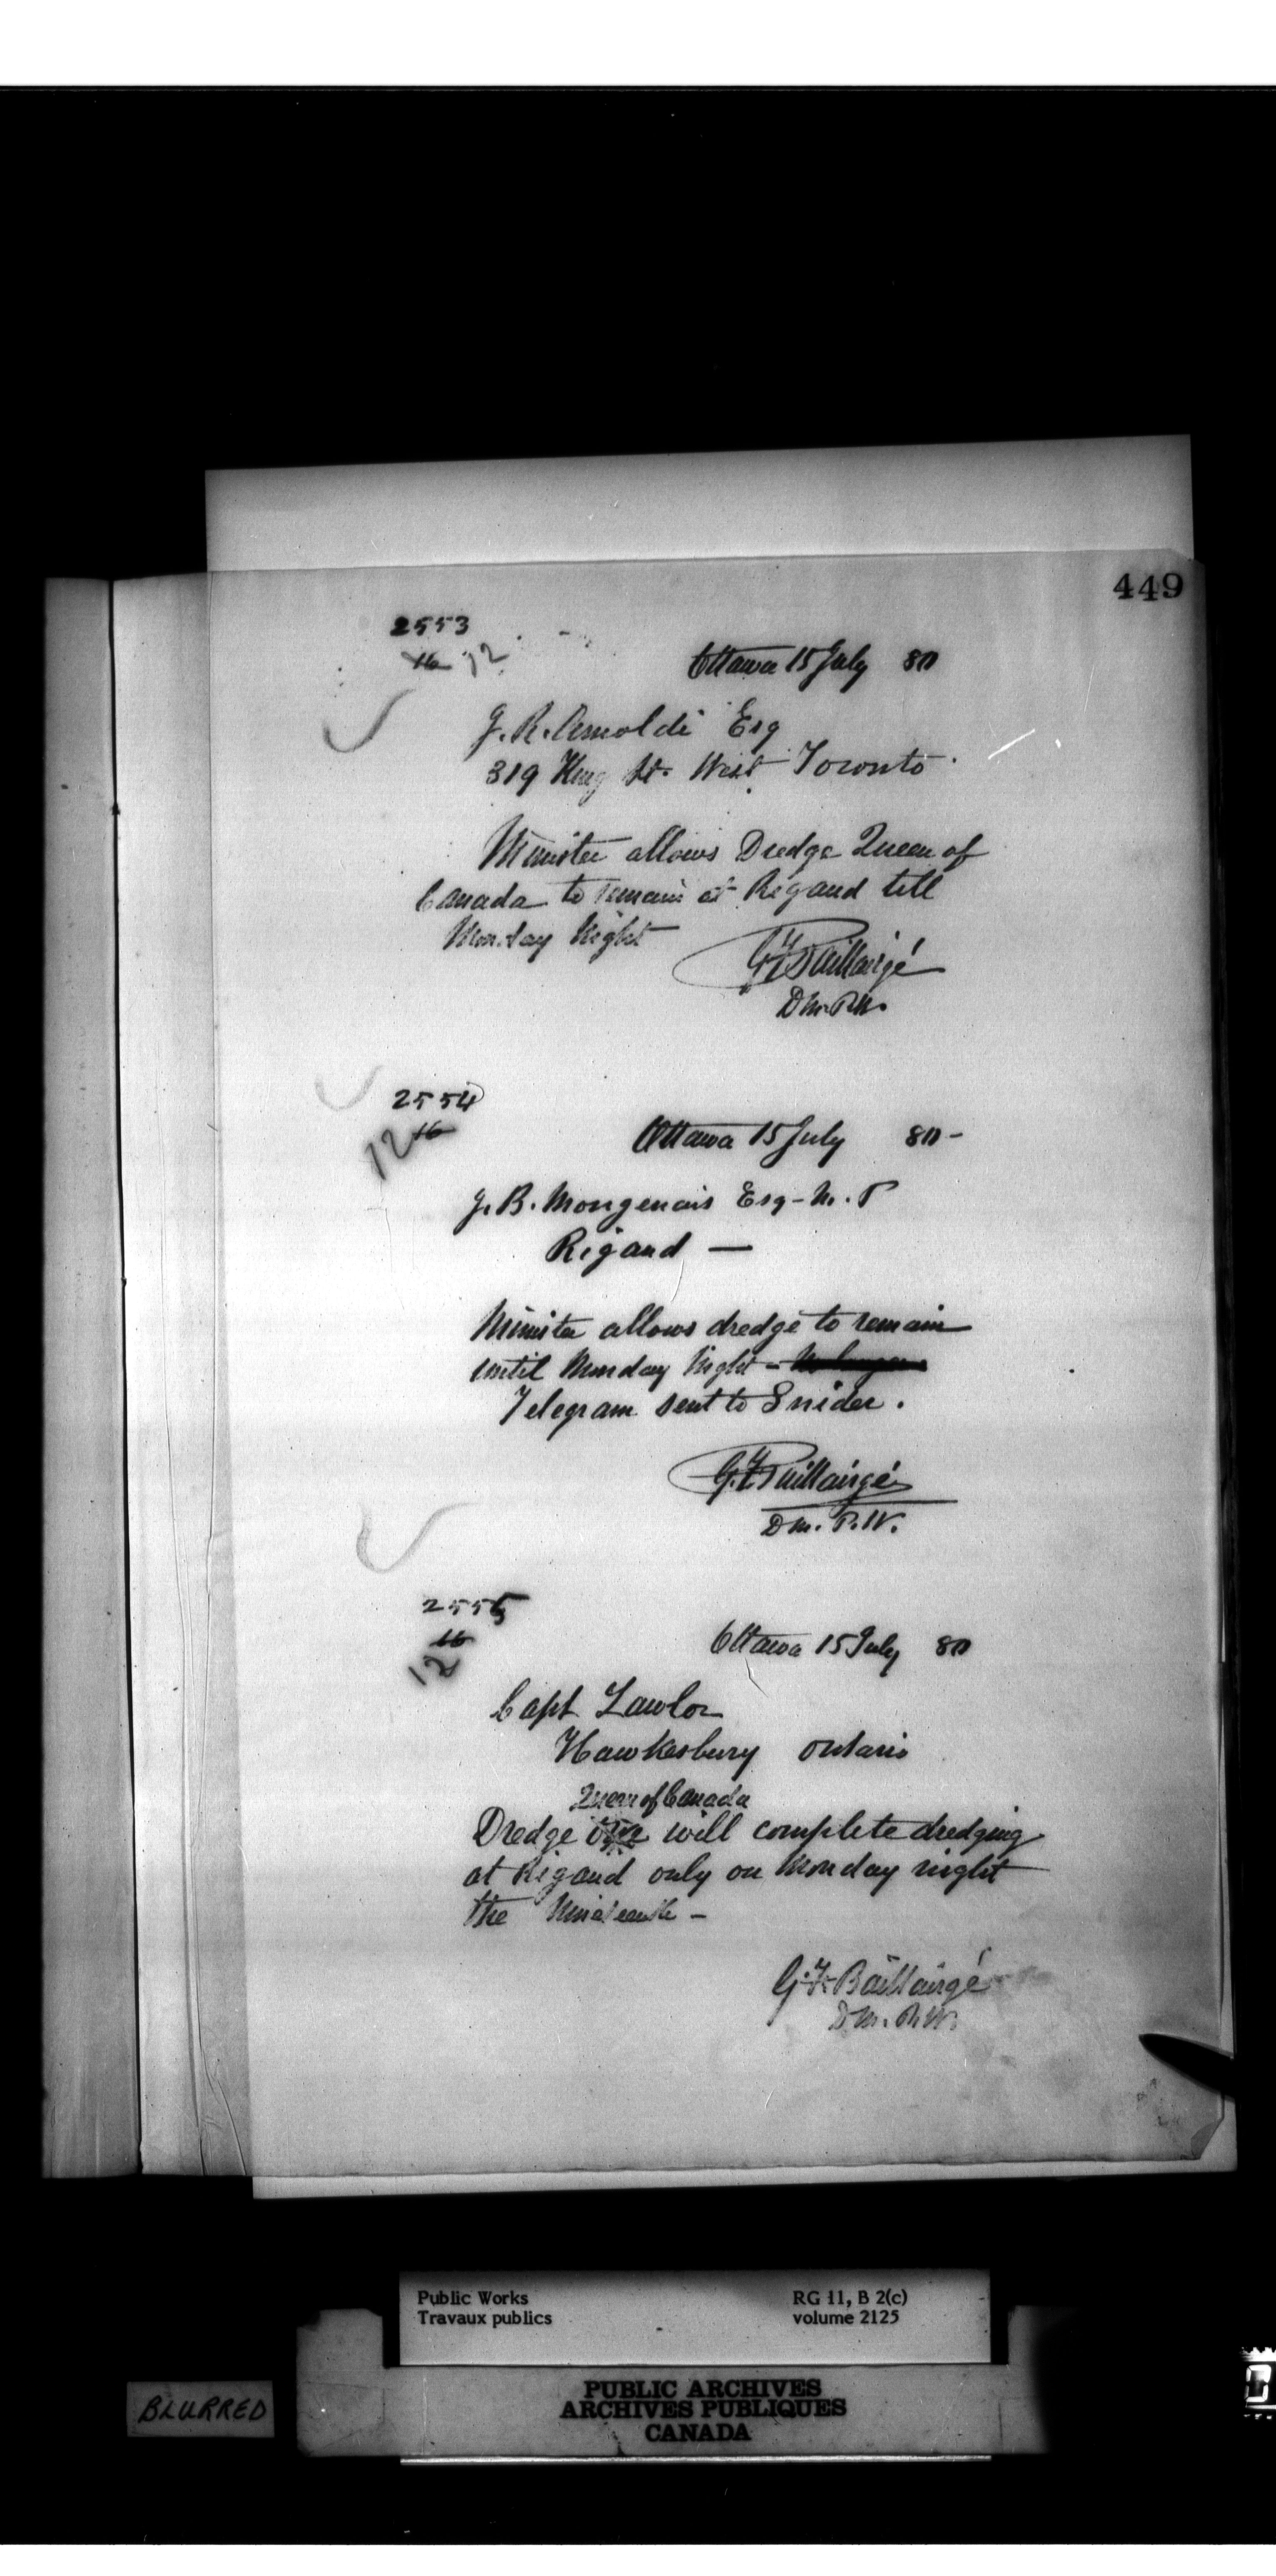 449
2553
16 12
Ottawa 15 July 80
J. R. Arnoldi Esq
319 King St. West Toronto
Minister allows Dredge Queen of
Canada to remain at Rigaud till
Monday Night
G F Baillairgé
D M. P. W.
2554
16
12
Ottawa 15 July 80 -
J. B. Mongenais Esq - M. P
Rigaud —
Minister allows dredge to remain
until Monday Night - No longer
Telegram sent to Snider.
G. F. Baillairgé
D M. P. W.
2555
16
12
Ottawa 15 July 80
Capt Lawlor
Hawkesbury Ontario
Queen of Canada
Dredge will complete dredging
at Rigaud only on Monday night
the Nineteenth -
G. F. Baillairgé
D M. P. W.
Public Works
Travaux publics
RG 11, B 2(c)
volume 2125
BLURRED
PUBLIC ARCHIVES
ARCHIVES PUBLIQUES
CANADA